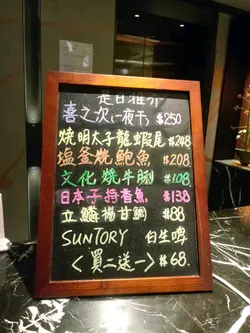 是日推介
喜之次一夜干 $250
燒明太子龍蝦尾 $248
塩釜燒鮑魚 $208
文化燒牛脷 $108
日本子持香魚 $138
立鱗揚甘鯛 $88
SUNTORY 白生啤
<買二送一> $68